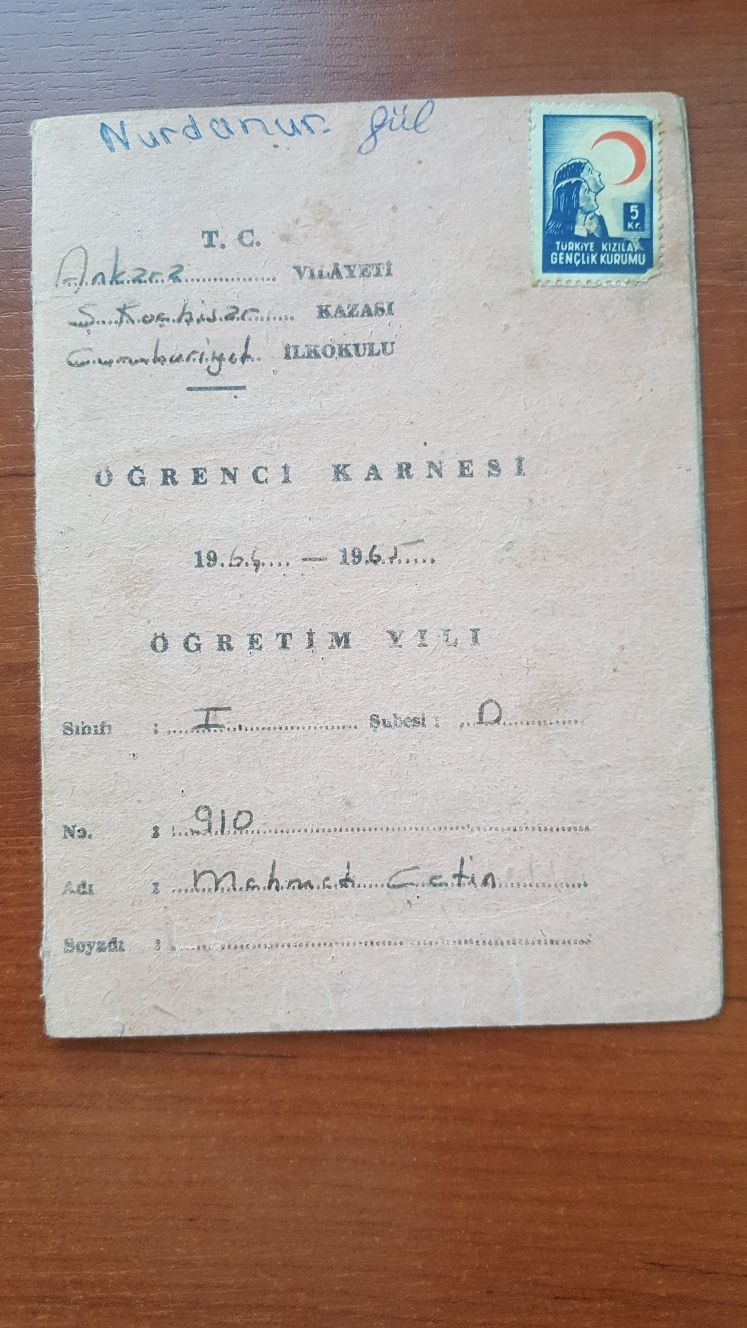 Nurdanur gül
5
Kr.
TÜRKİYE KIZILAY
GENÇLİK KURUMU
T. C.
Ankara VİLÂYETİ
Ş. Koçhisar KAZASI
Cumhuriyet İLKOKULU
ÖĞRENCİ KARNESİ
1964 — 1965
ÖĞRETİM YILI
Sınıfı : I Şubesi : D
No. : 910
Adı : Mehmet Çetin
Soyadı :